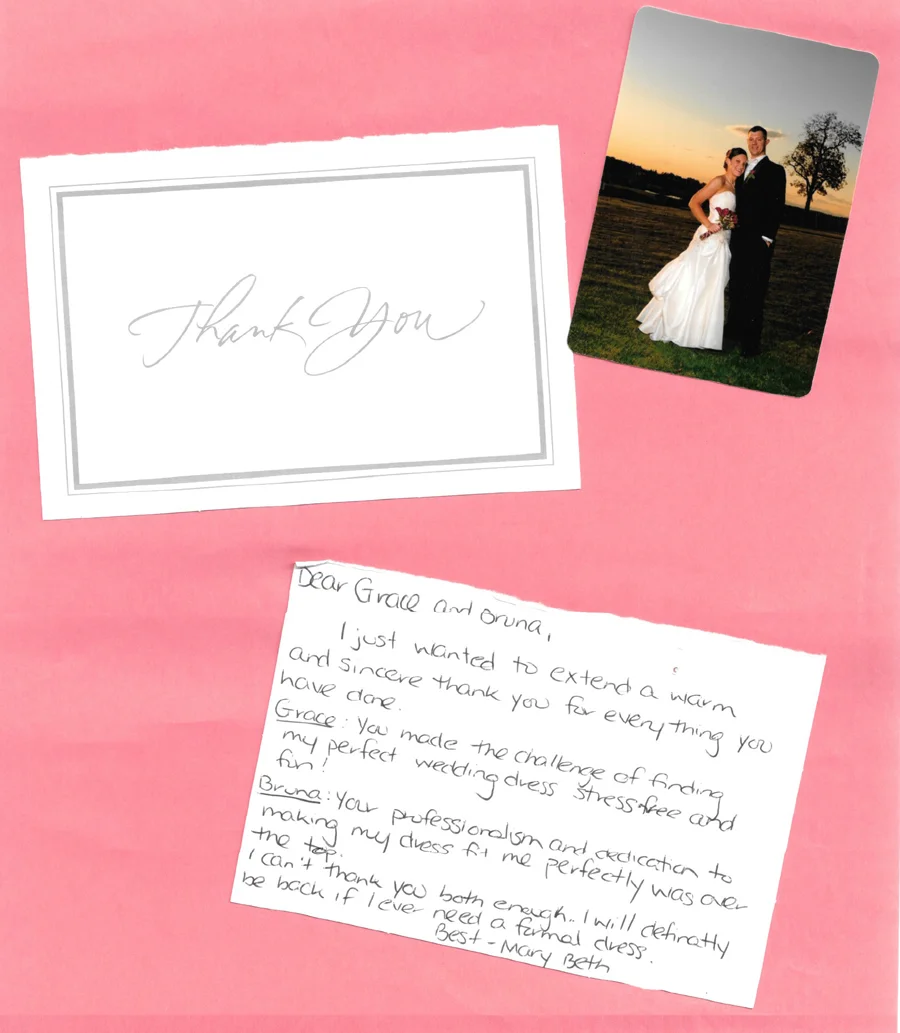 Thank You
Dear Grace and Bruna,
I just wanted to extend a warm
and sincere thank you for everything you
have done.
Grace: You made the challenge of finding
my perfect wedding dress stress-free and
fun!
Bruna: Your professionalism and dedication to
making my dress fit me perfectly was over
the top.
I can't thank you both enough.. I will definatly
be back if I ever need a formal dress.
Best - Mary Beth